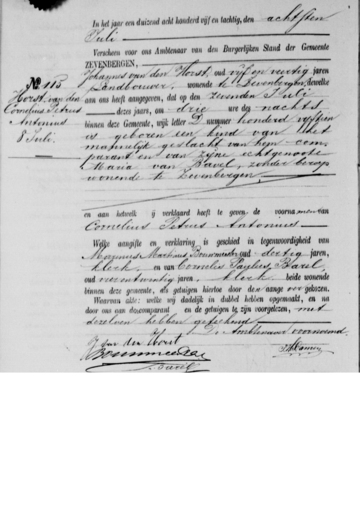 In het jaar een duizend acht honderd vijf en tachtig, den achtsten
Juli
Verscheen voor ons Ambtenaar van den Burgerlijken Stand der Gemeente
ZEVENBERGEN,
No 115
Horst, van den
Cornelius Petrus
Antonius
8 Juli.
Johannes van den Horst, oud vijf en veertig jaren
Landbouwer, wonende te Zevenbergen, dewelke
aan ons heeft aangegeven, dat op den zesden Juli
dezes jaars, om drie ure des nachts
binnen deze Gemeente, wijk letter D nummer honderd vijftien
is geboren een kind van het
mannelijk geslacht van hem com-
parant en van zijne echtgenoote
Maria van Bavel, zonder beroep
wonende te Zevenbergen
en aan hetwelk hij verklaard heeft te geven de voornamen van
Cornelius Petrus Antonius
Welke aangifte en verklaring is geschied in tegenwoordigheid van
oud dertig jaren,
klerk, en van Cornelis
oud jaren, klerk, beide wonende
binnen deze gemeente, als getuigen hiertoe door den aangever gekozen.
Waarvan akte: welke wij dadelijk in dubbel hebben opgemaakt, en na
door ons aan den comparant en de getuigen te zijn voorgelezen, met
dezelven hebben geteekend
De Ambtenaar voornoemd.
J van den Horst